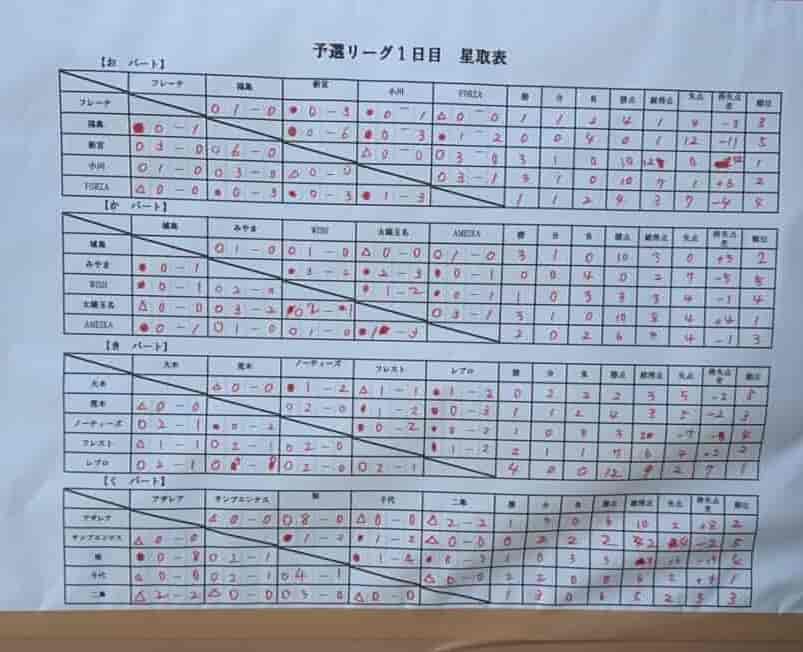 予選リーグ1日目 星取表
【お パート】
フレーテ 福島 新宮 小川 FORZA 勝 分 負 勝点 総得点 失点 得失点差 順位
フレーテ ○1-0 ●0-3 ●0-1 △0-0 1 1 2 4 1 4 -3 3
福島 ●0-1 ●0-6 ●0-3 ●1-2 0 0 4 0 1 12 -11 5
新宮 ○3-0 ○6-0 △0-0 ○3-0 3 1 0 10 12 0 1
小川 ○1-0 ○3-0 △0-0 ○3-1 3 1 0 10 7 1 +6 2
FORZA △0-0 ●0-3 ●1-3 1 1 2 4 3 7 -4 4
【か パート】
城島 みやま WISH 太陽玉名 AMEIXA 勝 分 負 勝点 総得点 失点 得失点差 順位
城島 ○1-0 ○1-0 △0-0 ○1-0 3 1 0 10 3 0 +3 2
みやま ●0-1 ●2-3 ●0-1 0 0 4 0 2 7 -5 5
WISH ●0-1 ○2-0 ●1-2 ●0-1 1 0 3 3 3 4 -1 4
太陽玉名 △0-0 ○3-2 ○2-1 ○3-1 3 1 0 10 8 4 +4 1
AMEIXA ●0-1 ○1-0 ○1-0 ●1-3 2 0 2 6 4 -1 3
【き パート】
大木 荒木 ノーティーズ フレスト レブロ 勝 分 負 勝点 総得点 失点 得失点差 順位
大木 △0-0 ●1-2 △1-1 ●1-2 0 2 2 2 3 5 -2 5
荒木 △0-0 ○2-0 ●1-2 ●0-3 1 1 2 4 3 5 -2 3
ノーティーズ ○2-1 ●0-2 ●0-2 ●0-2 1 0 3 3 4
フレスト △1-1 ○2-1 ○2-0 ●1-2 2 1 1 7 6 4 +2 2
レブロ ○2-1 ○2-0 ○2-1 4 0 0 12 9 2 7 1
【く パート】
アザレア サンブエンテス 千代 二島 勝 分 負 勝点 総得点 失点 得失点差 順位
アザレア △0-0 ○8-0 △0-0 △2-2 1 3 0 6 10 2 +8 2
サンブエンテス △0-0 ●1-2 ●1-2 △0-0 0 2 2 2 2 4 -2 5
●0-8 ○2-1 ●1-4 ●0-3 1 0 3 3 4
千代 △0-0 ○2-1 ○4-1 △0-0 2 2 0 8 6 2 +4 1
二島 △2-2 △0-0 ○3-0 △0-0 1 3 0 6 5 2 3 3